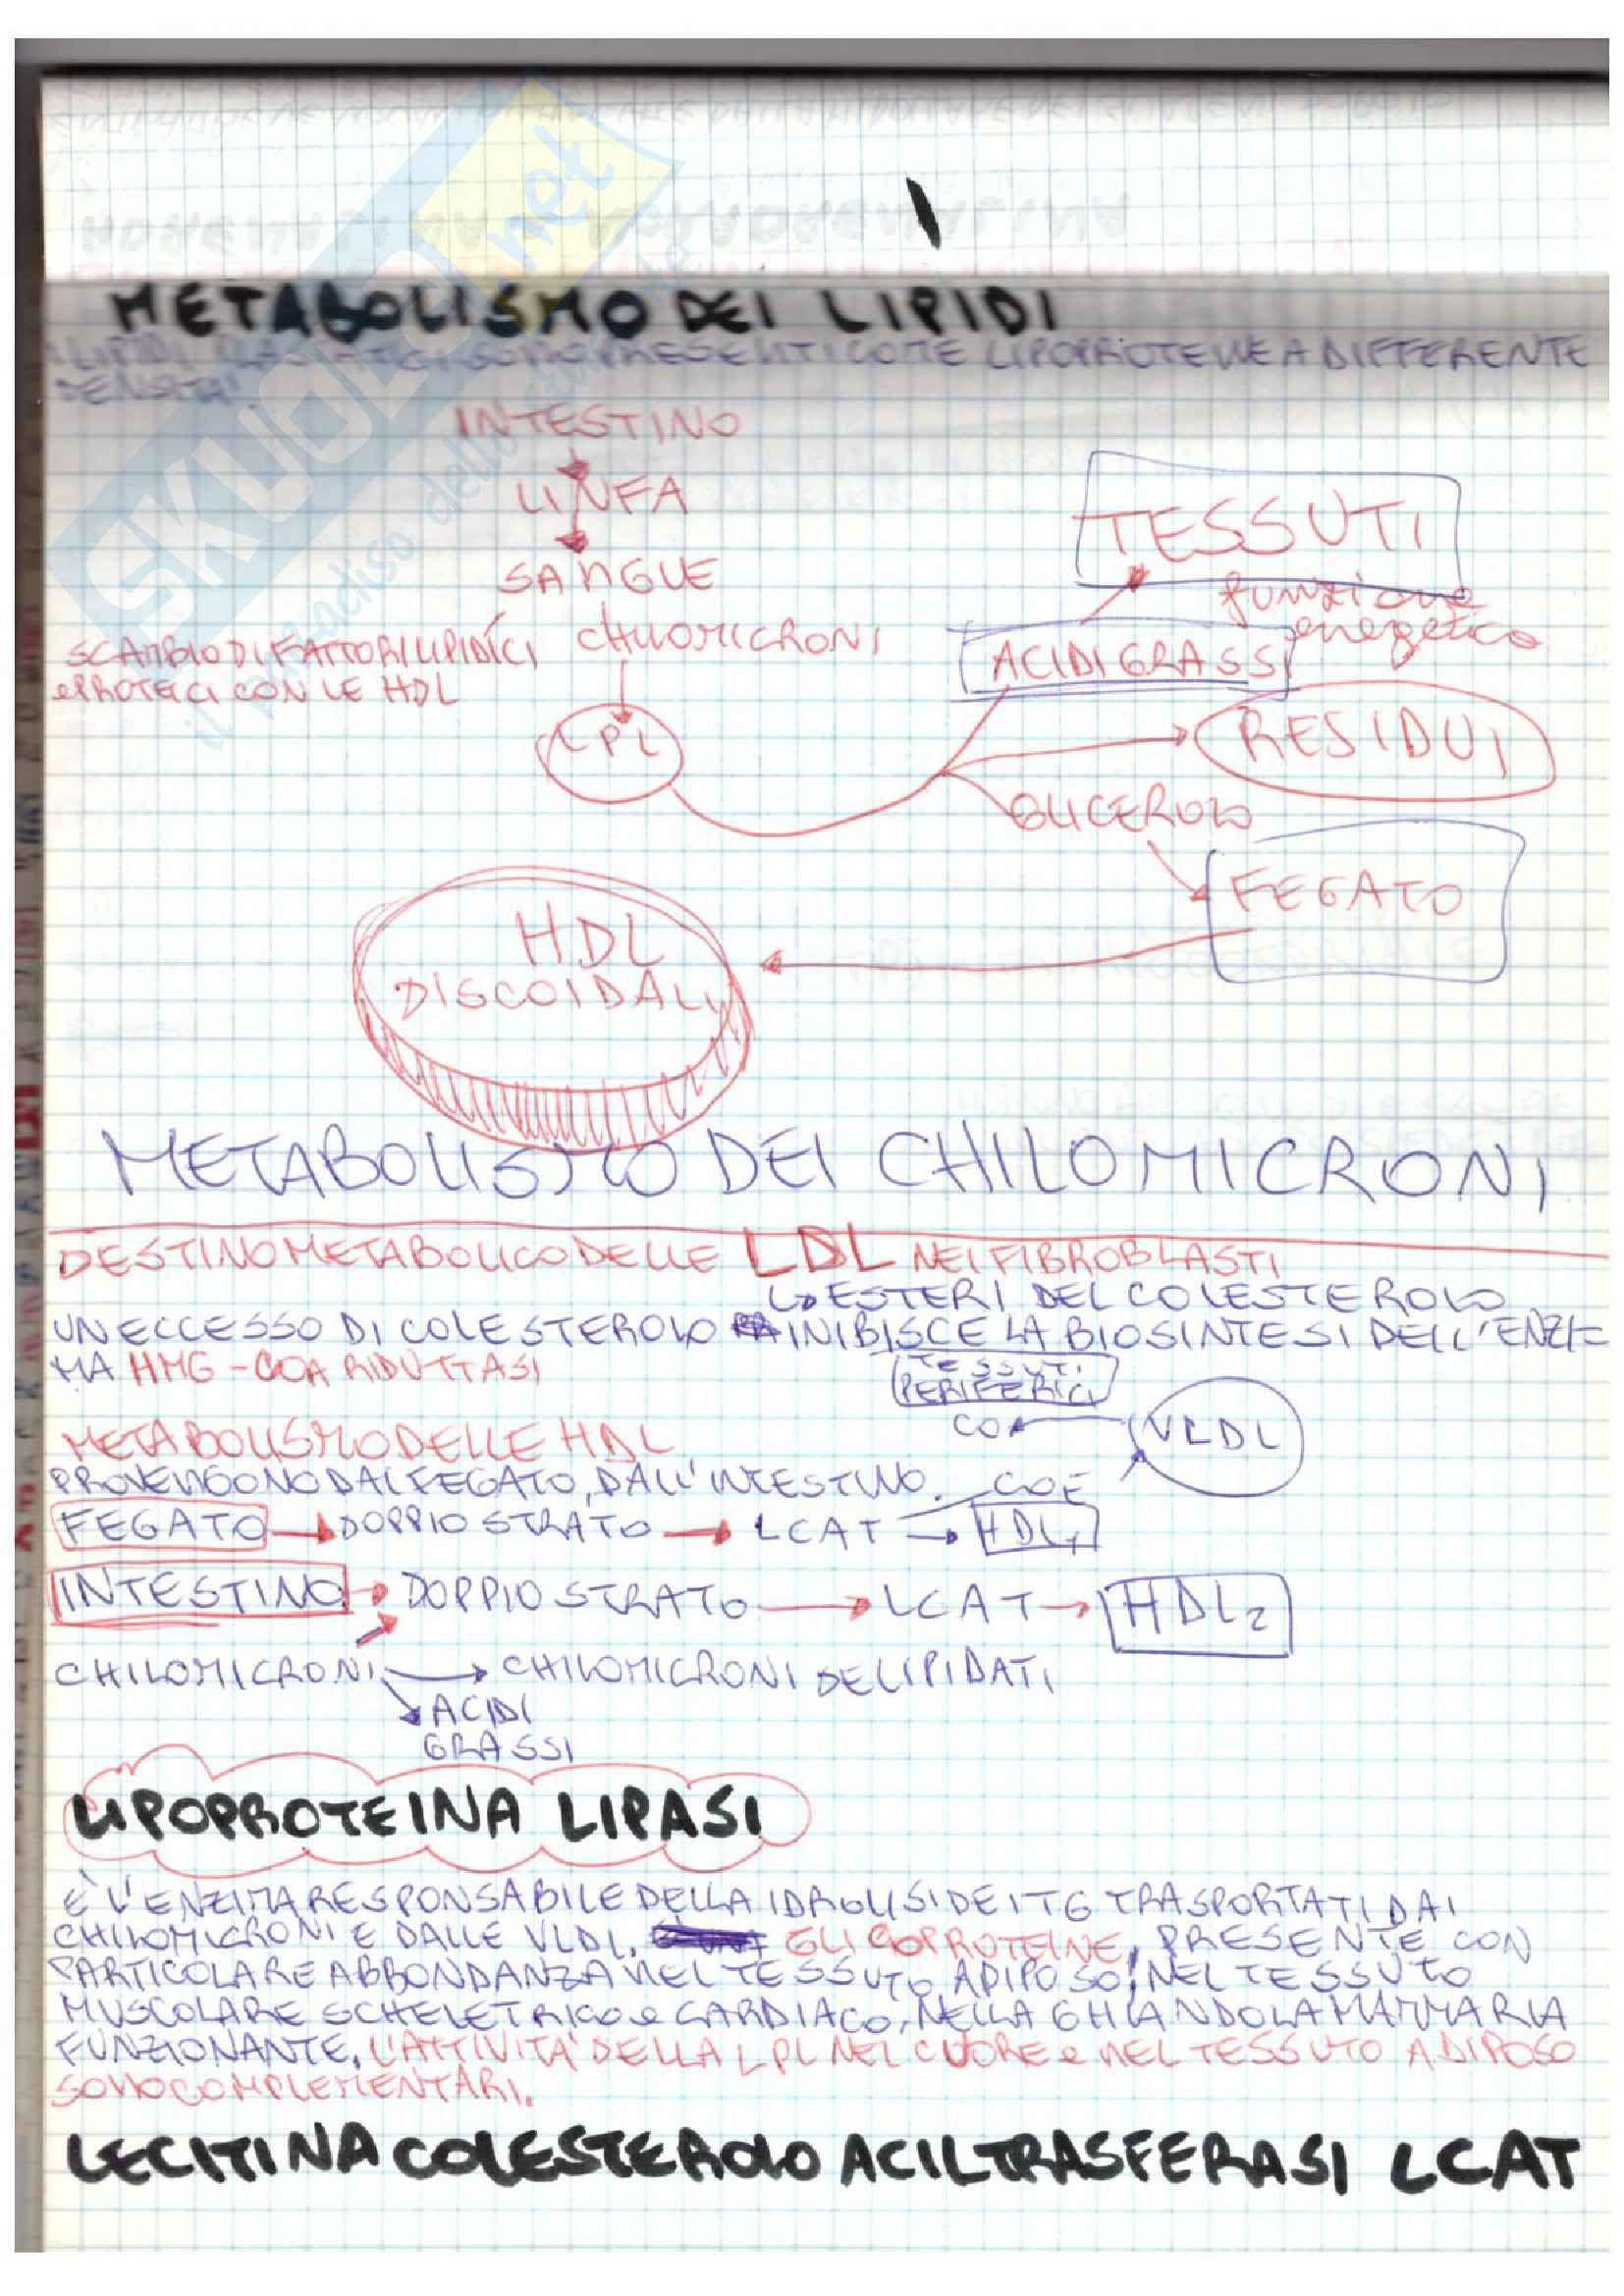 METABOLISMO DEI LIPIDI
I LIPIDI PLASMATICI SONO PRESENTI COME LIPOPROTEINE A DIFFERENTE
DENSITA'
INTESTINO
LINFA
SANGUE
CHILOMICRONI
SCAMBIO DI FATTORI LIPIDICI
e PROTEICI CON LE HDL
LPL
TESSUTI
funzione
energetica
ACIDI GRASSI
RESIDUI
GLICEROLO
FEGATO
HDL
DISCOIDALI
METABOLISMO DEI CHILOMICRONI
DESTINO METABOLICO DELLE LDL NEI FIBROBLASTI
ESTERI DEL COLESTEROLO
UN ECCESSO DI COLESTEROLO INIBISCE LA BIOSINTESI DELL'ENZI=
MA HMG-COA RIDUTTASI
TESSUTI
PERIFERICI
CO
VLDL
METABOLISMO DELLE HDL
PROVENGONO DAL FEGATO, DALL'INTESTINO.
COE
FEGATO DOPPIO STRATO LCAT HDL
INTESTINO DOPPIO STRATO LCAT HDL2
CHILOMICRONI CHILOMICRONI DELIPIDATI
ACIDI
GRASSI
LIPOPROTEINA LIPASI
È L'ENZIMA RESPONSABILE DELLA IDROLISI DEI TG TRASPORTATI DAI
CHILOMICRONI E DALLE VLDL. GLICOPROTEINE, PRESENTE CON
PARTICOLARE ABBONDANZA NEL TESSUTO ADIPOSO, NEL TESSUTO
MUSCOLARE SCHELETRICO e CARDIACO, NELLA GHIANDOLA MAMMARIA
FUNZIONANTE. L'ATTIVITA' DELLA LPL NEL CUORE e NEL TESSUTO ADIPOSO
SONO COMPLEMENTARI.
LECITINA COLESTEROLO ACILTRASFERASI LCAT
SKUOLA.net
il paradiso dello studente